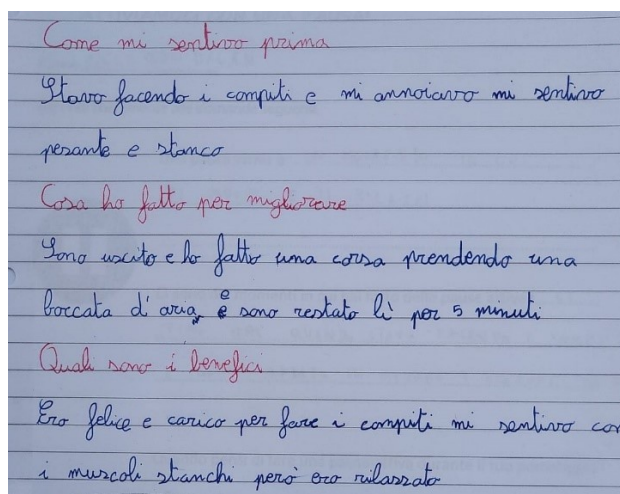 Come mi sentivo prima
Stavo facendo i compiti e mi annoiavo mi sentivo
pesante e stanco
Cosa ho fatto per migliorare
Sono uscito e ho fatto una corsa prendendo una
boccata d'aria, e sono restato lì per 5 minuti
Quali sono i benefici
Ero felice e carico per fare i compiti mi sentivo con
i muscoli stanchi però ero rilassato